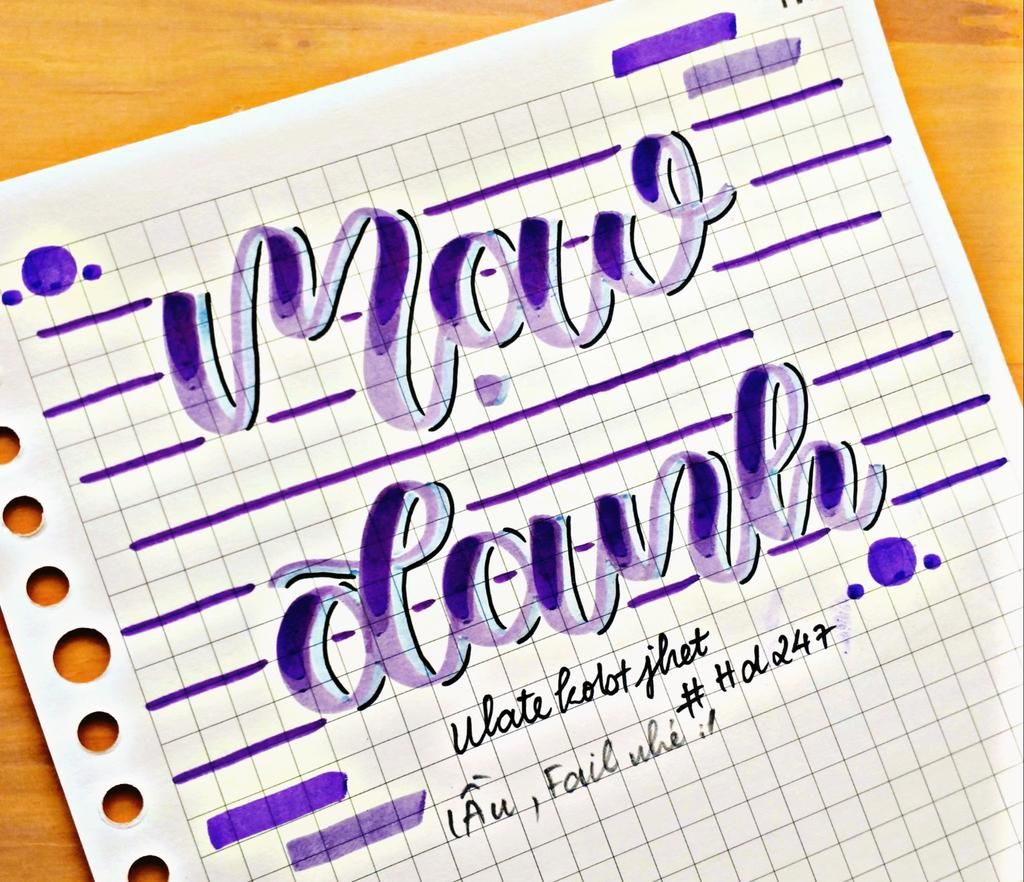 Mạo
danh
Ulate kolot jhet
# Hd247
(Âu , Fail nhé :!